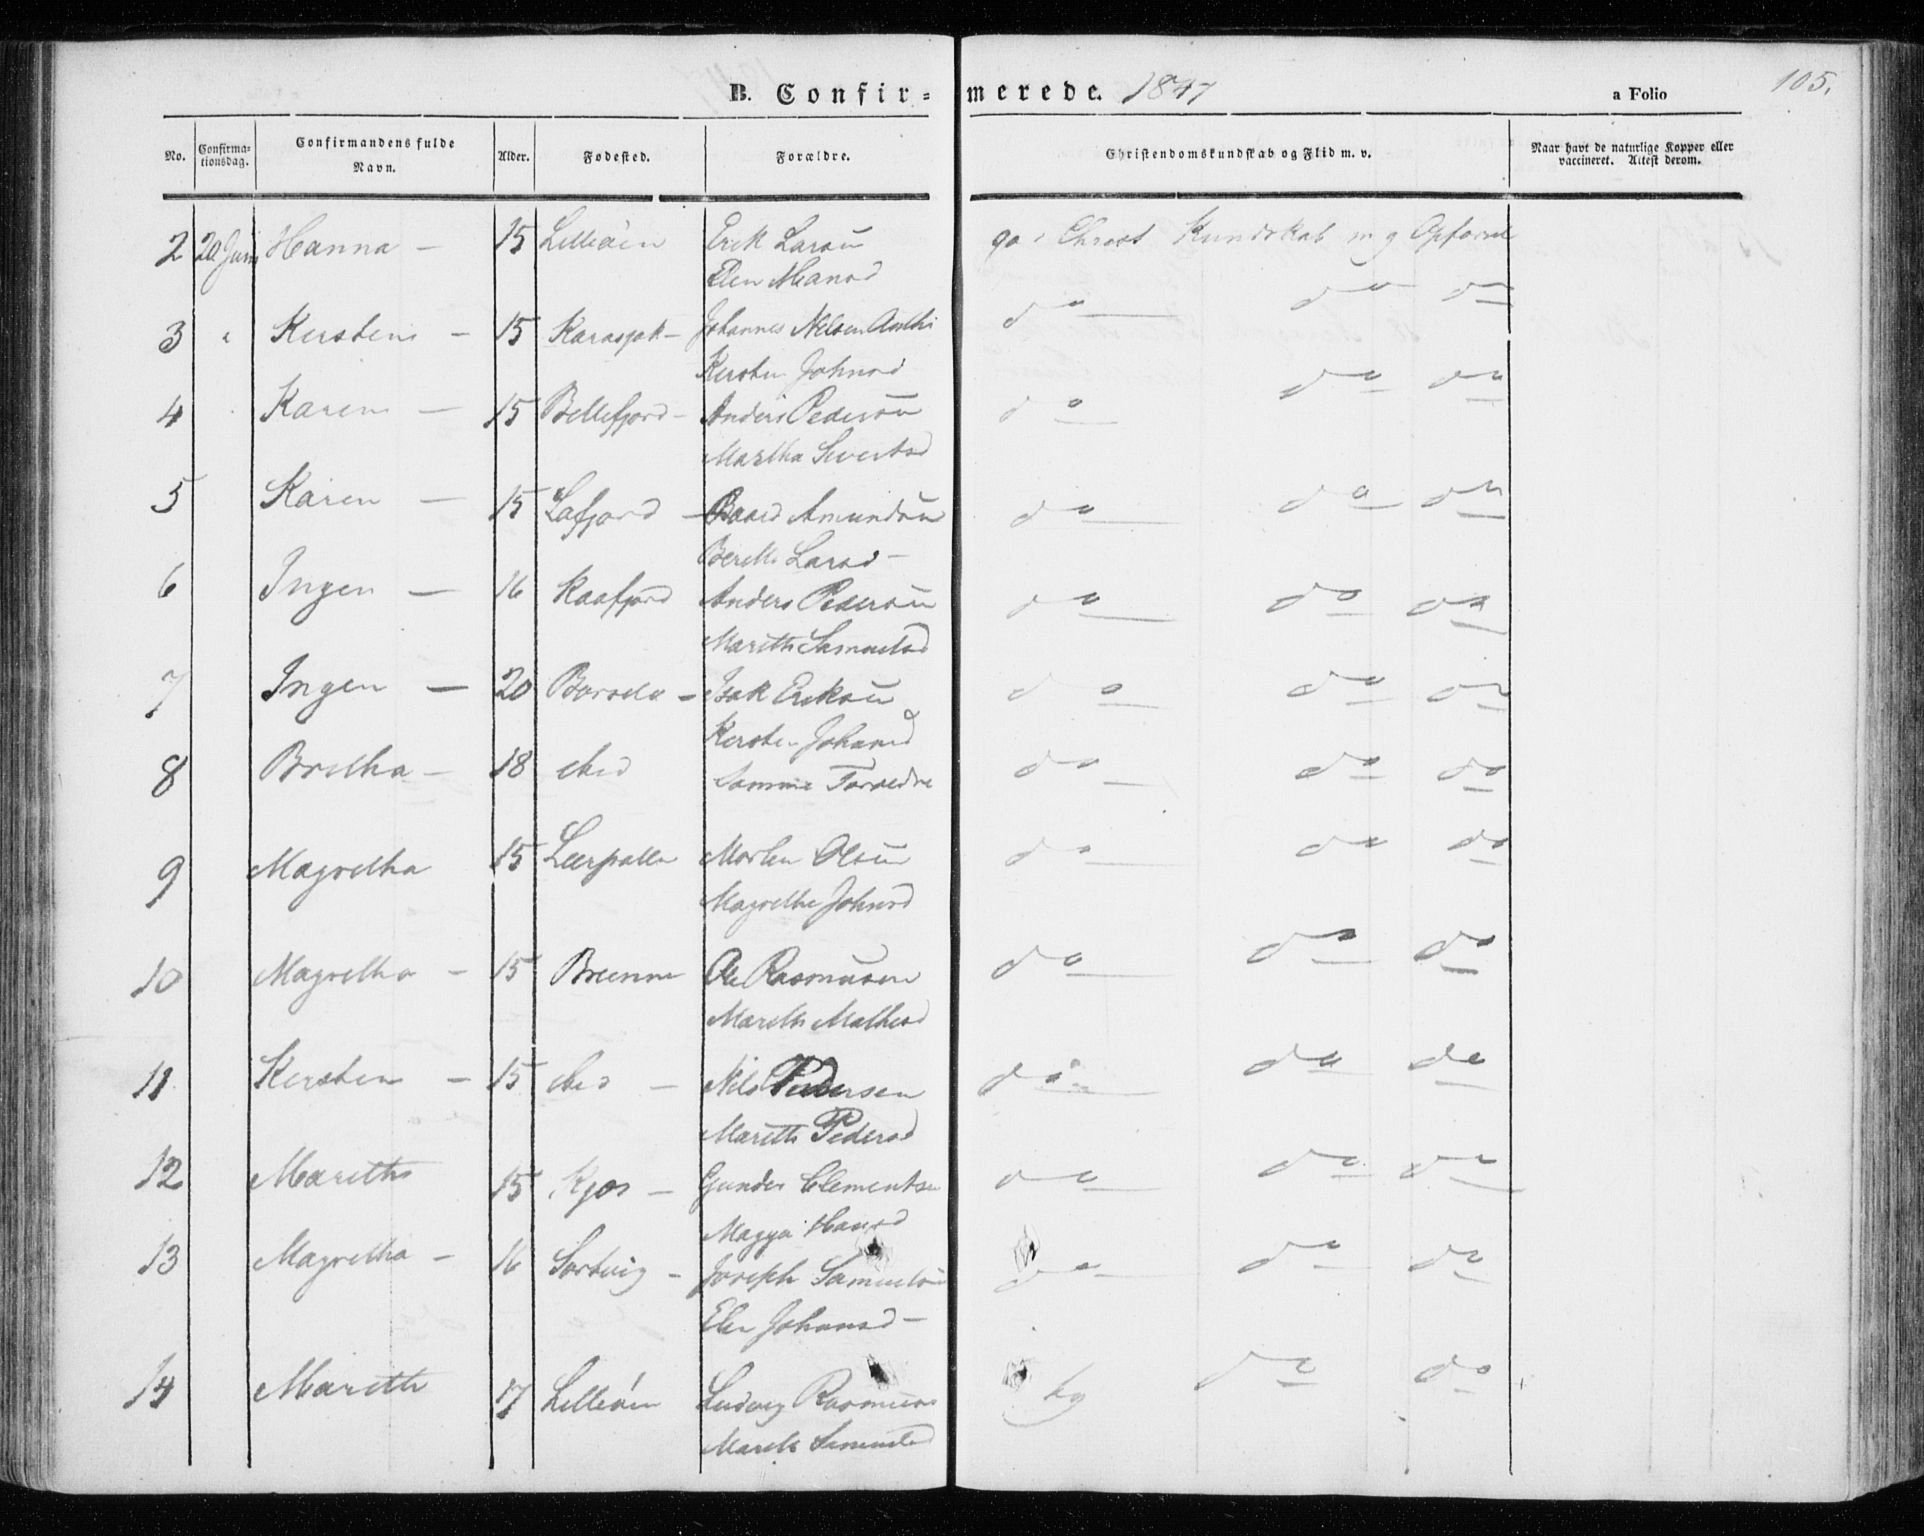 B. Confir=merede. 1847 a Folio 105.
No. Confirma-tionsdag. Confirmandens fulde Navn. Alder. Fødested. Forældre. Christendomskundskab og Flid m. v. Naar havt de naturlige Kopper eller vaccineret. Attest derom.
2 20 Juni Hanna – 15 Lilleöen Erik Larsen go i Christ Kundskab m g Opførsel
Elen Mansd
3 " Kersten – 15 Karasjok – Johannes Nilsen do do do
Kersten Johnsd
4 " Karen – 15 Bellefjord – Anders Pedersen do do do
Martha Sivertsd
5 Karen – 15 Lafjord – Baard Amundsen do do do
Berethe Larsd –
6 Ingen – 16 Kaafjord Anders Pedersen do do do
Marethe Samuelsd
7 Ingen – 20 Borselv – Isak Eriksen do do do
Kersten Johansd
8 Bretha – 18 ibid Samme Forældre do do do
9 Magretha 15 Leerpollen Morten Olsen do do do
Magrethe Johnsd
10 Magretha – 15 Brenna Ole Rasmusen do do do
Marethe Mathisd
11 Kersten – 15 ibid – Nils Pedersen do do do
Marethe Pedersd
12 Marethe 15 Kjæs – Gunder Clementsen do do do
Magga Hansd
13 Magretha – 16 Sortvig – Joseph Samuelsen do do do
Elen Johansd –
14 Marethe 17 Lilleöen Ludvig Rasmusen tg do do
Marethe Samuelsd